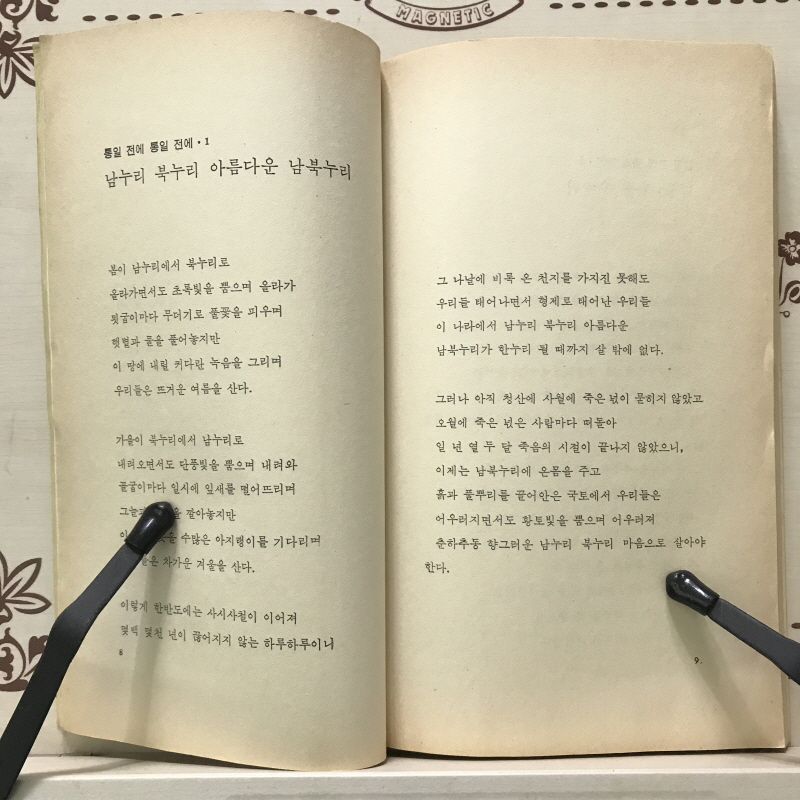 MAGNETIC
통일 전에 통일 전에 · 1
남누리 북누리 아름다운 남북누리
봄이 남누리에서 북누리로
올라가면서도 초록빛을 뿜으며 올라가
묏굽이마다 무더기로 풀꽃을 피우며
햇볕과 물을 풀어놓지만
이 땅에 내릴 커다란 녹음을 그리며
우리들은 뜨거운 여름을 산다.
가을이 북누리에서 남누리로
내려오면서도 단풍빛을 뿜으며 내려와
물굽이마다 일시에 잎새를 떨어뜨리며
깔아놓지만
수많은 아지랭이를 기다리며
차가운 겨울을 산다.
이렇게 한반도에는 사시사철이 이어져
몇백 몇천 년이 끊어지지 않는 하루하루이니
8
그 나날에 비록 온 천지를 가지진 못해도
우리들 태어나면서 형제로 태어난 우리들
이 나라에서 남누리 북누리 아름다운
남북누리가 한누리 될 때까지 살 밖에 없다.
그러나 아직 청산에 사월에 죽은 넋이 묻히지 않았고
오월에 죽은 넋은 사람마다 떠돌아
일 년 열 두 달 죽음의 시절이 끝나지 않았으니,
이제는 남북누리에 온몸을 주고
흙과 풀뿌리를 끌어안은 국토에서 우리들은
어우러지면서도 황토빛을 뿜으며 어우러져
춘하추동 향그러운 남누리 북누리 마음으로 살아야
한다.
9